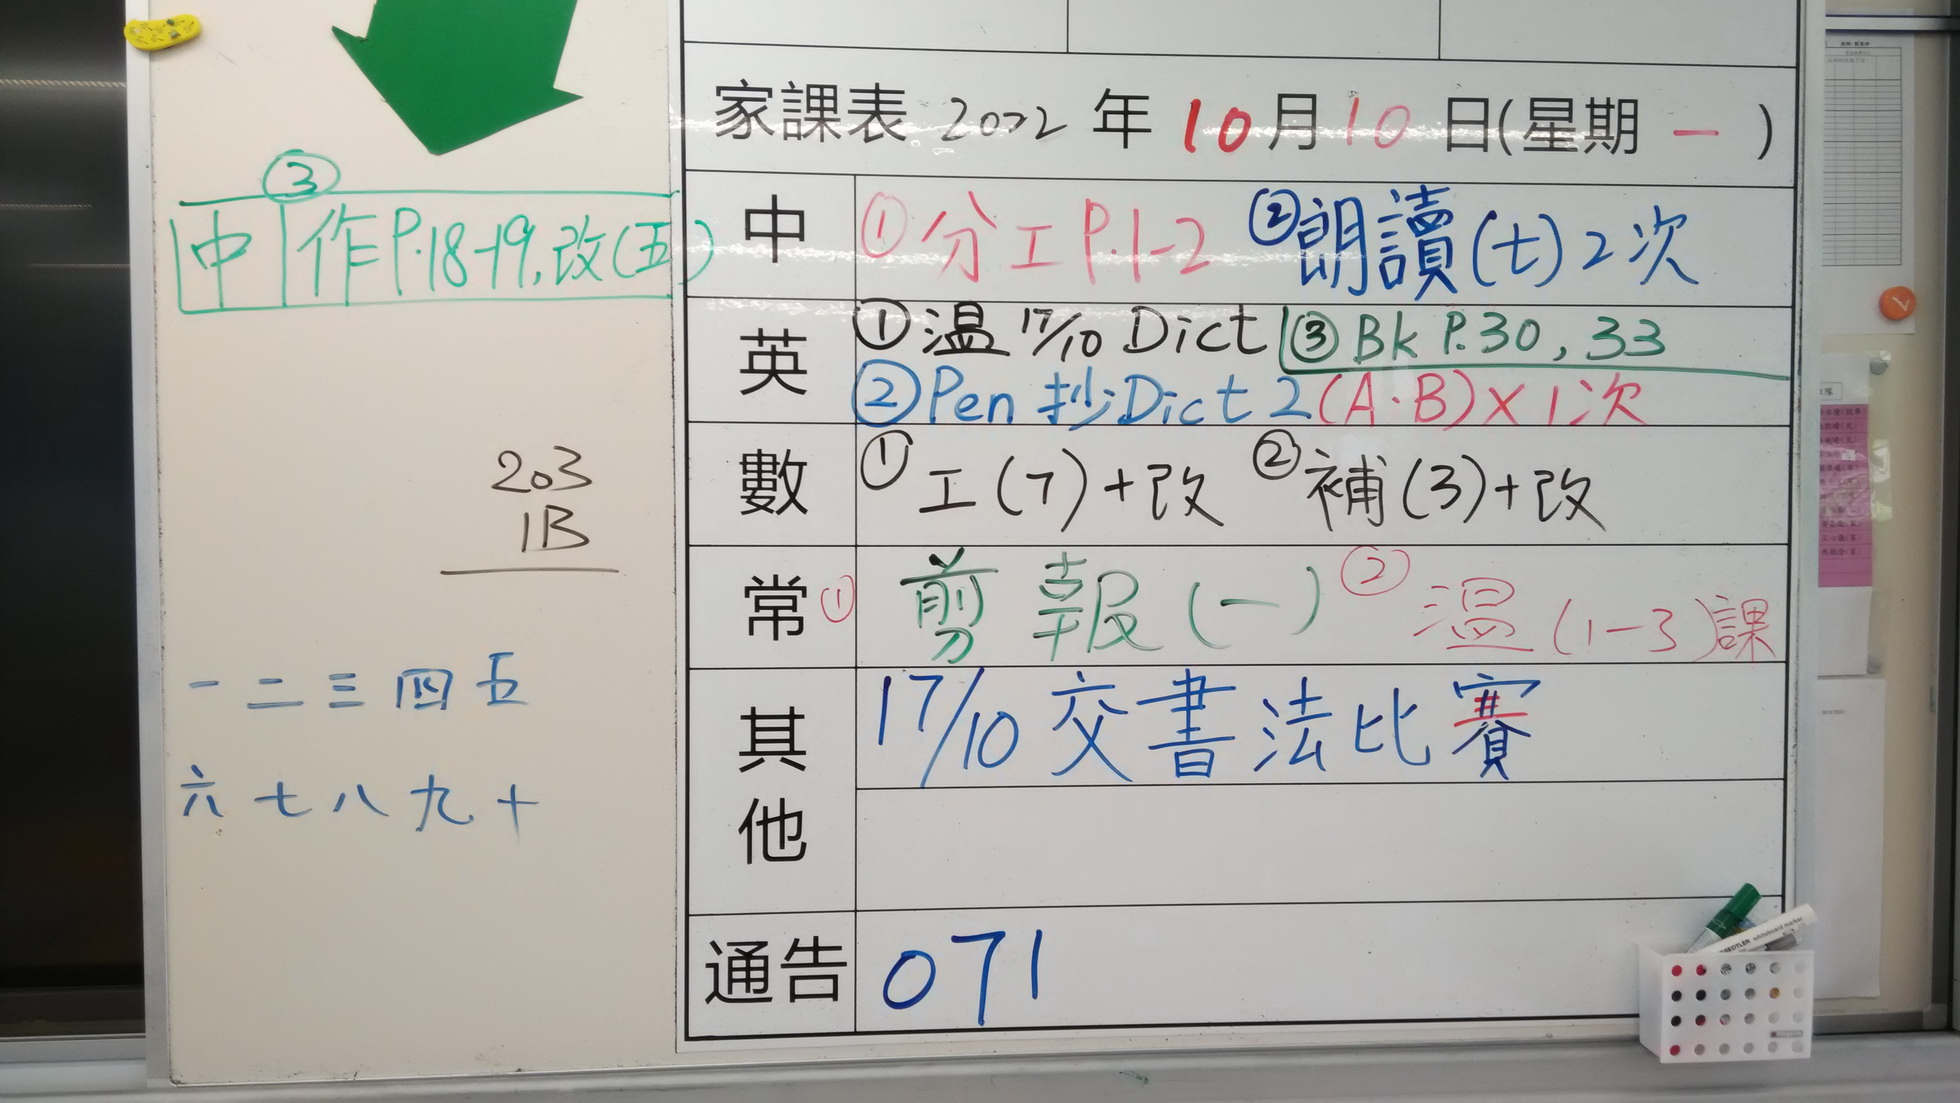 家課表 2022 年 10 月 10 日(星期 一 )
③
中 作P.18-19,改(五)
中 ①分工P.1-2 ②朗讀(七)2次
英 ①温 17/10 Dict ③Bk P.30, 33
②Pen 抄Dict 2(A·B)×1次
數 ①工(7)+改 ②補(3)+改
常 ①剪報(一) ②温(1-3)課
其他 17/10 交書法比賽
通告 071
203
1B
一 二 三 四 五
六 七 八 九 十